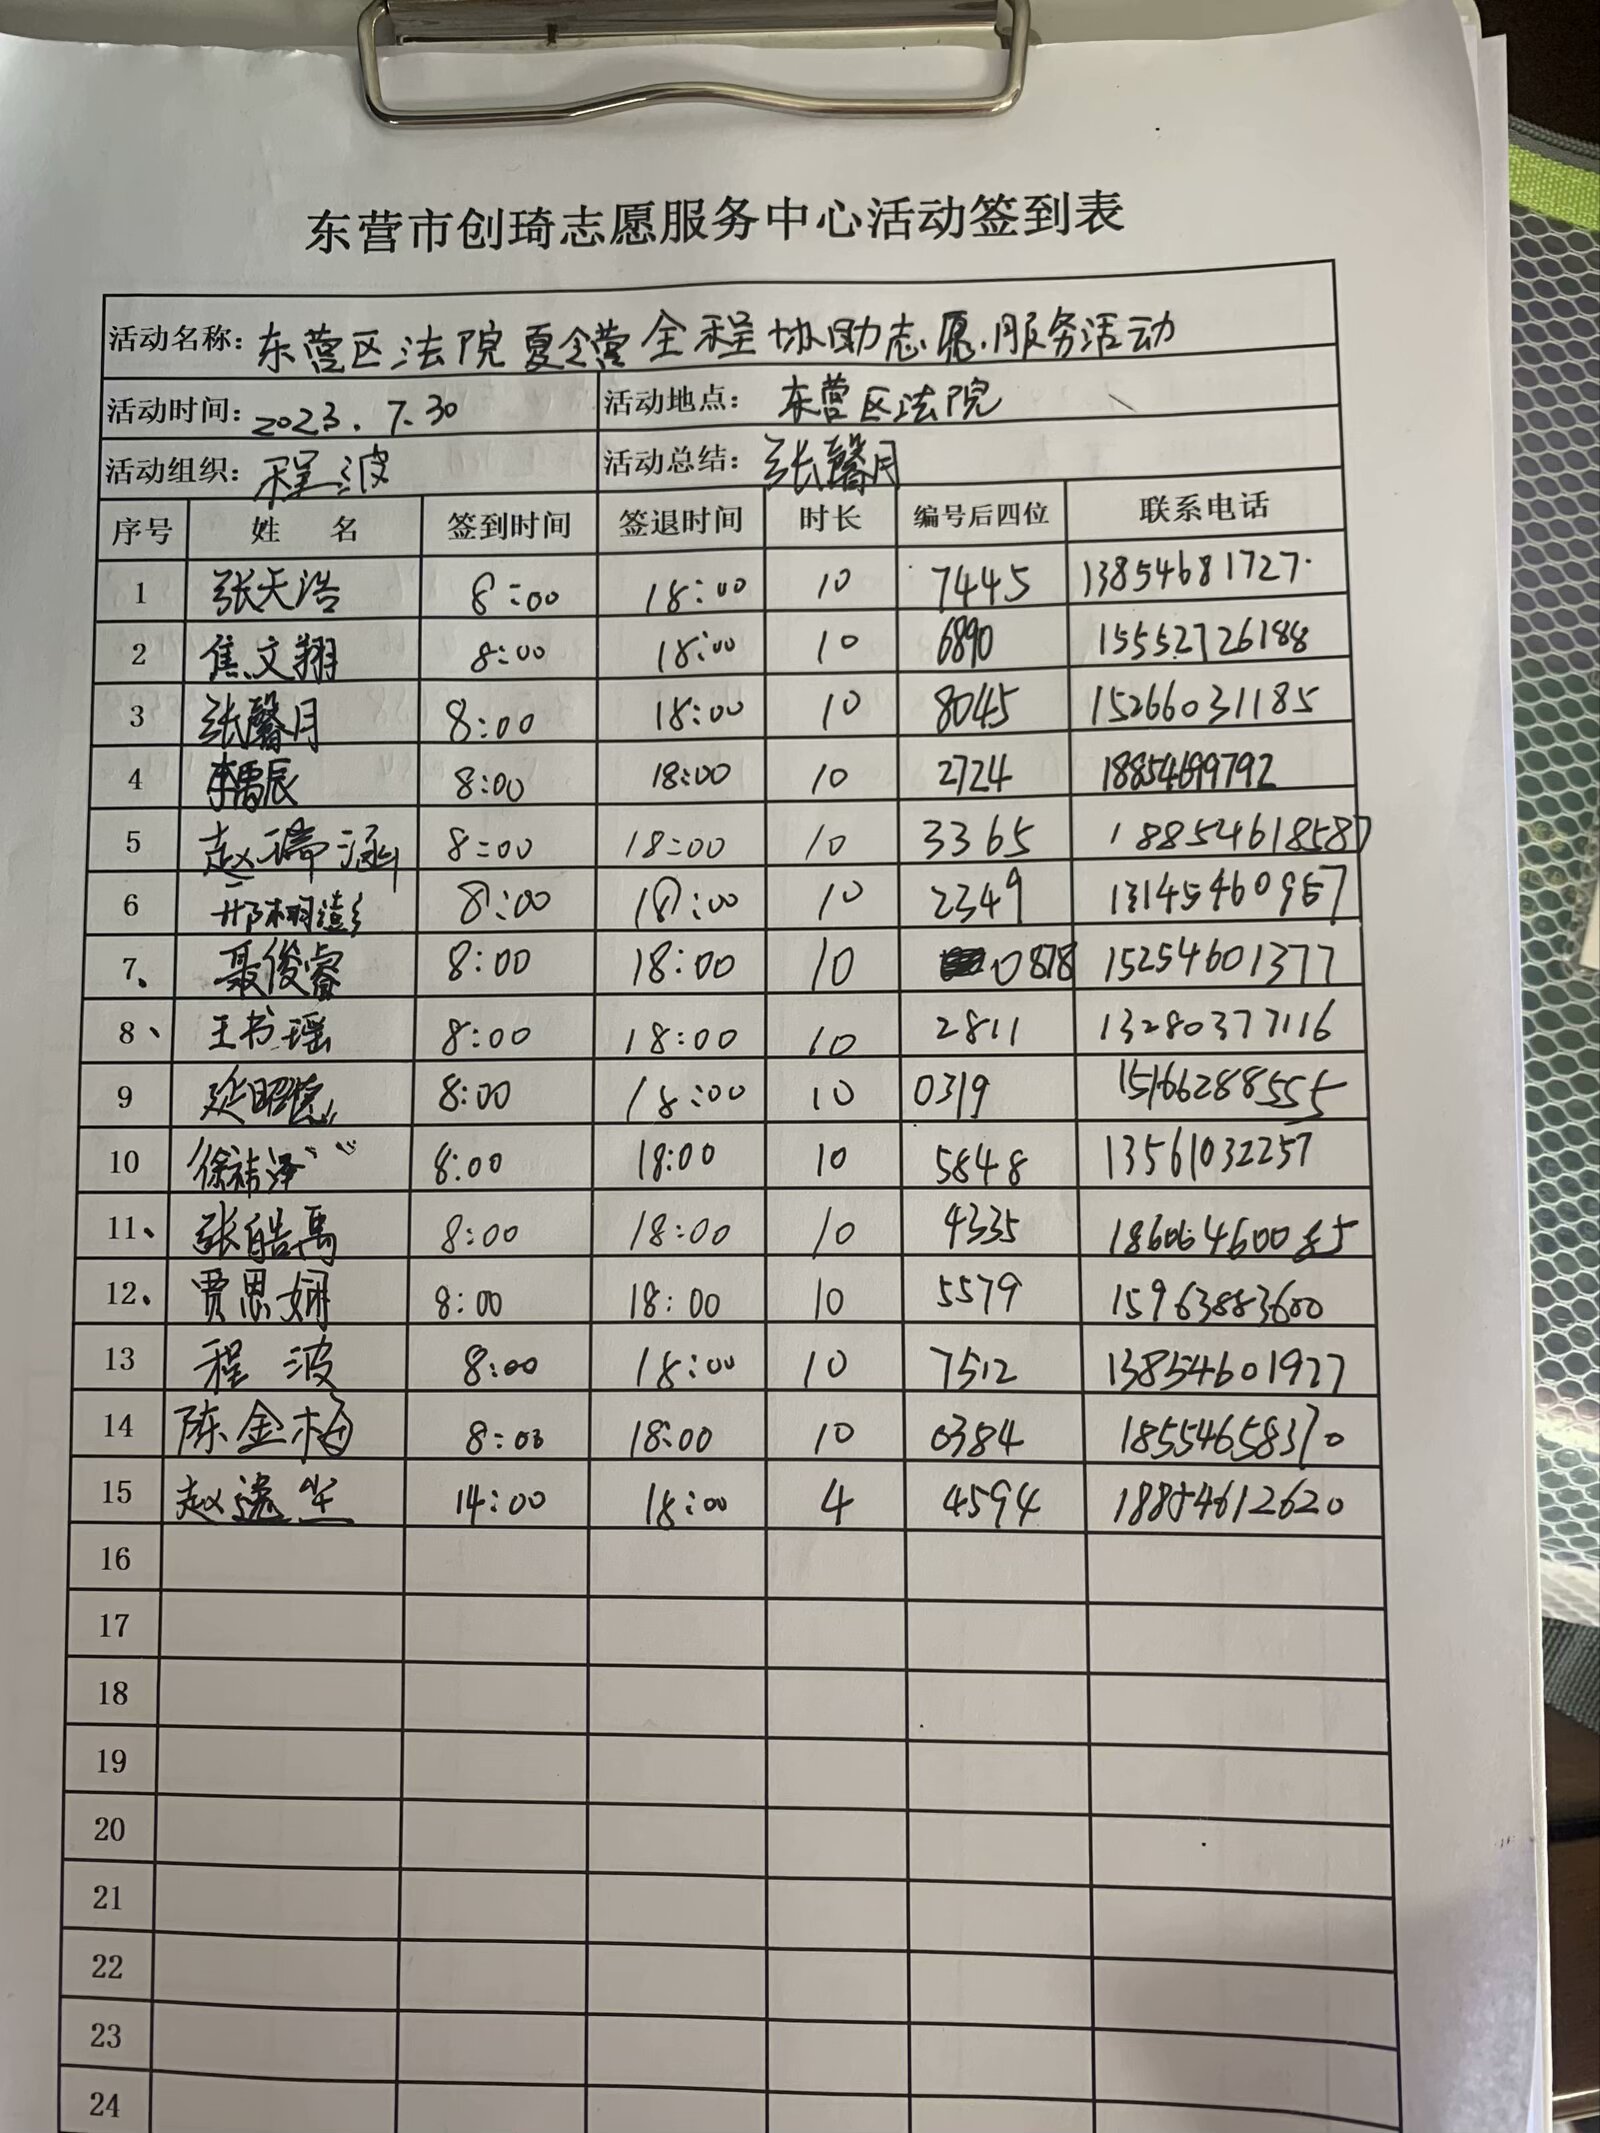 东营市创琦志愿服务中心活动签到表
活动名称：东营区法院夏令营全程协助志愿服务活动
活动时间：2023.7.30 活动地点：东营区法院
活动组织：程波 活动总结：张馨月
序号 姓 名 签到时间 签退时间 时长 编号后四位 联系电话
1 张天浩 8:00 18:00 10 7445 13854681727
2 焦文翔 8:00 18:00 10 6890 15552726188
3 张馨月 8:00 18:00 10 8045 15266031185
4 李禹辰 8:00 18:00 10 2724 18854699792
5 赵瑞涵 8:00 18:00 10 3365 18854618587
6 邢栩澎 8:00 18:00 10 2349 13145460957
7、 聂俊睿 8:00 18:00 10 0878 15254601377
8、 王书瑶 8:00 18:00 10 2811 13280377116
9 延昭德 8:00 18:00 10 0319 15166288555
10 徐祎泽 8:00 18:00 10 5848 13561032257
11、 张皓禹 8:00 18:00 10 4335 18606460085
12、 贾思娴 8:00 18:00 10 5579 15963883600
13 程波 8:00 18:00 10 7512 13854601977
14 陈金梅 8:00 18:00 10 0384 18554658370
15 赵逸 14:00 18:00 4 4594 18854612620
16
17
18
19
20
21
22
23
24